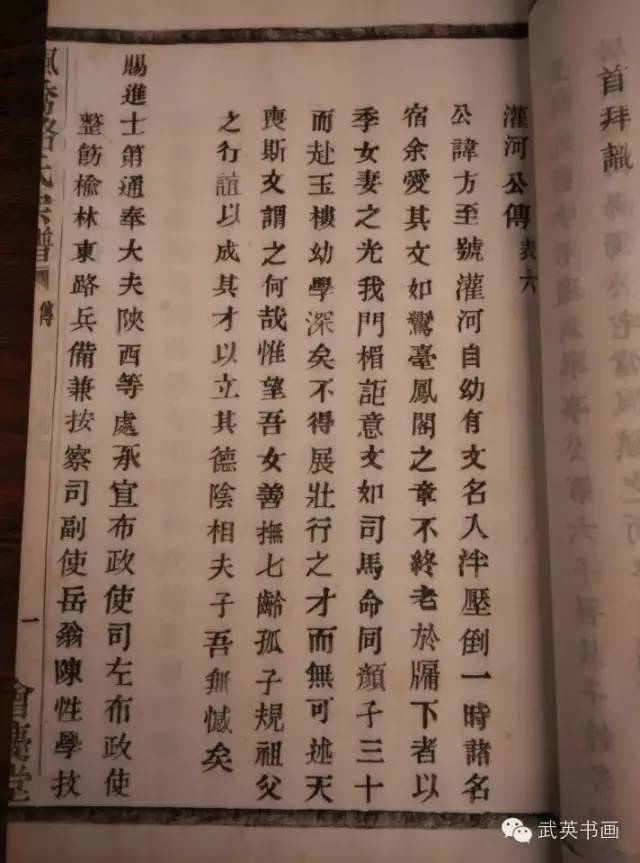 首拜識
灌河公傳 表六
公諱方至號灌河自幼有文名入泮壓倒一時諸名
宿余愛其文如鸞臺鳳閣之章不終老於牖下者以
季女妻之光我門楣詎意文如司馬命同顏子三十
而赴玉樓幼學深矣不得展壯行之才而無可述天
喪斯文謂之何哉惟望吾女善撫七齡孤子規祖父
之行誼以成其才以立其德陰相夫子吾無憾矣
賜進士第通奉大夫陝西等處承宣布政使司左布政使
整飭榆林東路兵備兼按察司副使岳翁陳性學技
楓橋駱氏宗譜 傳 一 會慶堂
武英书画